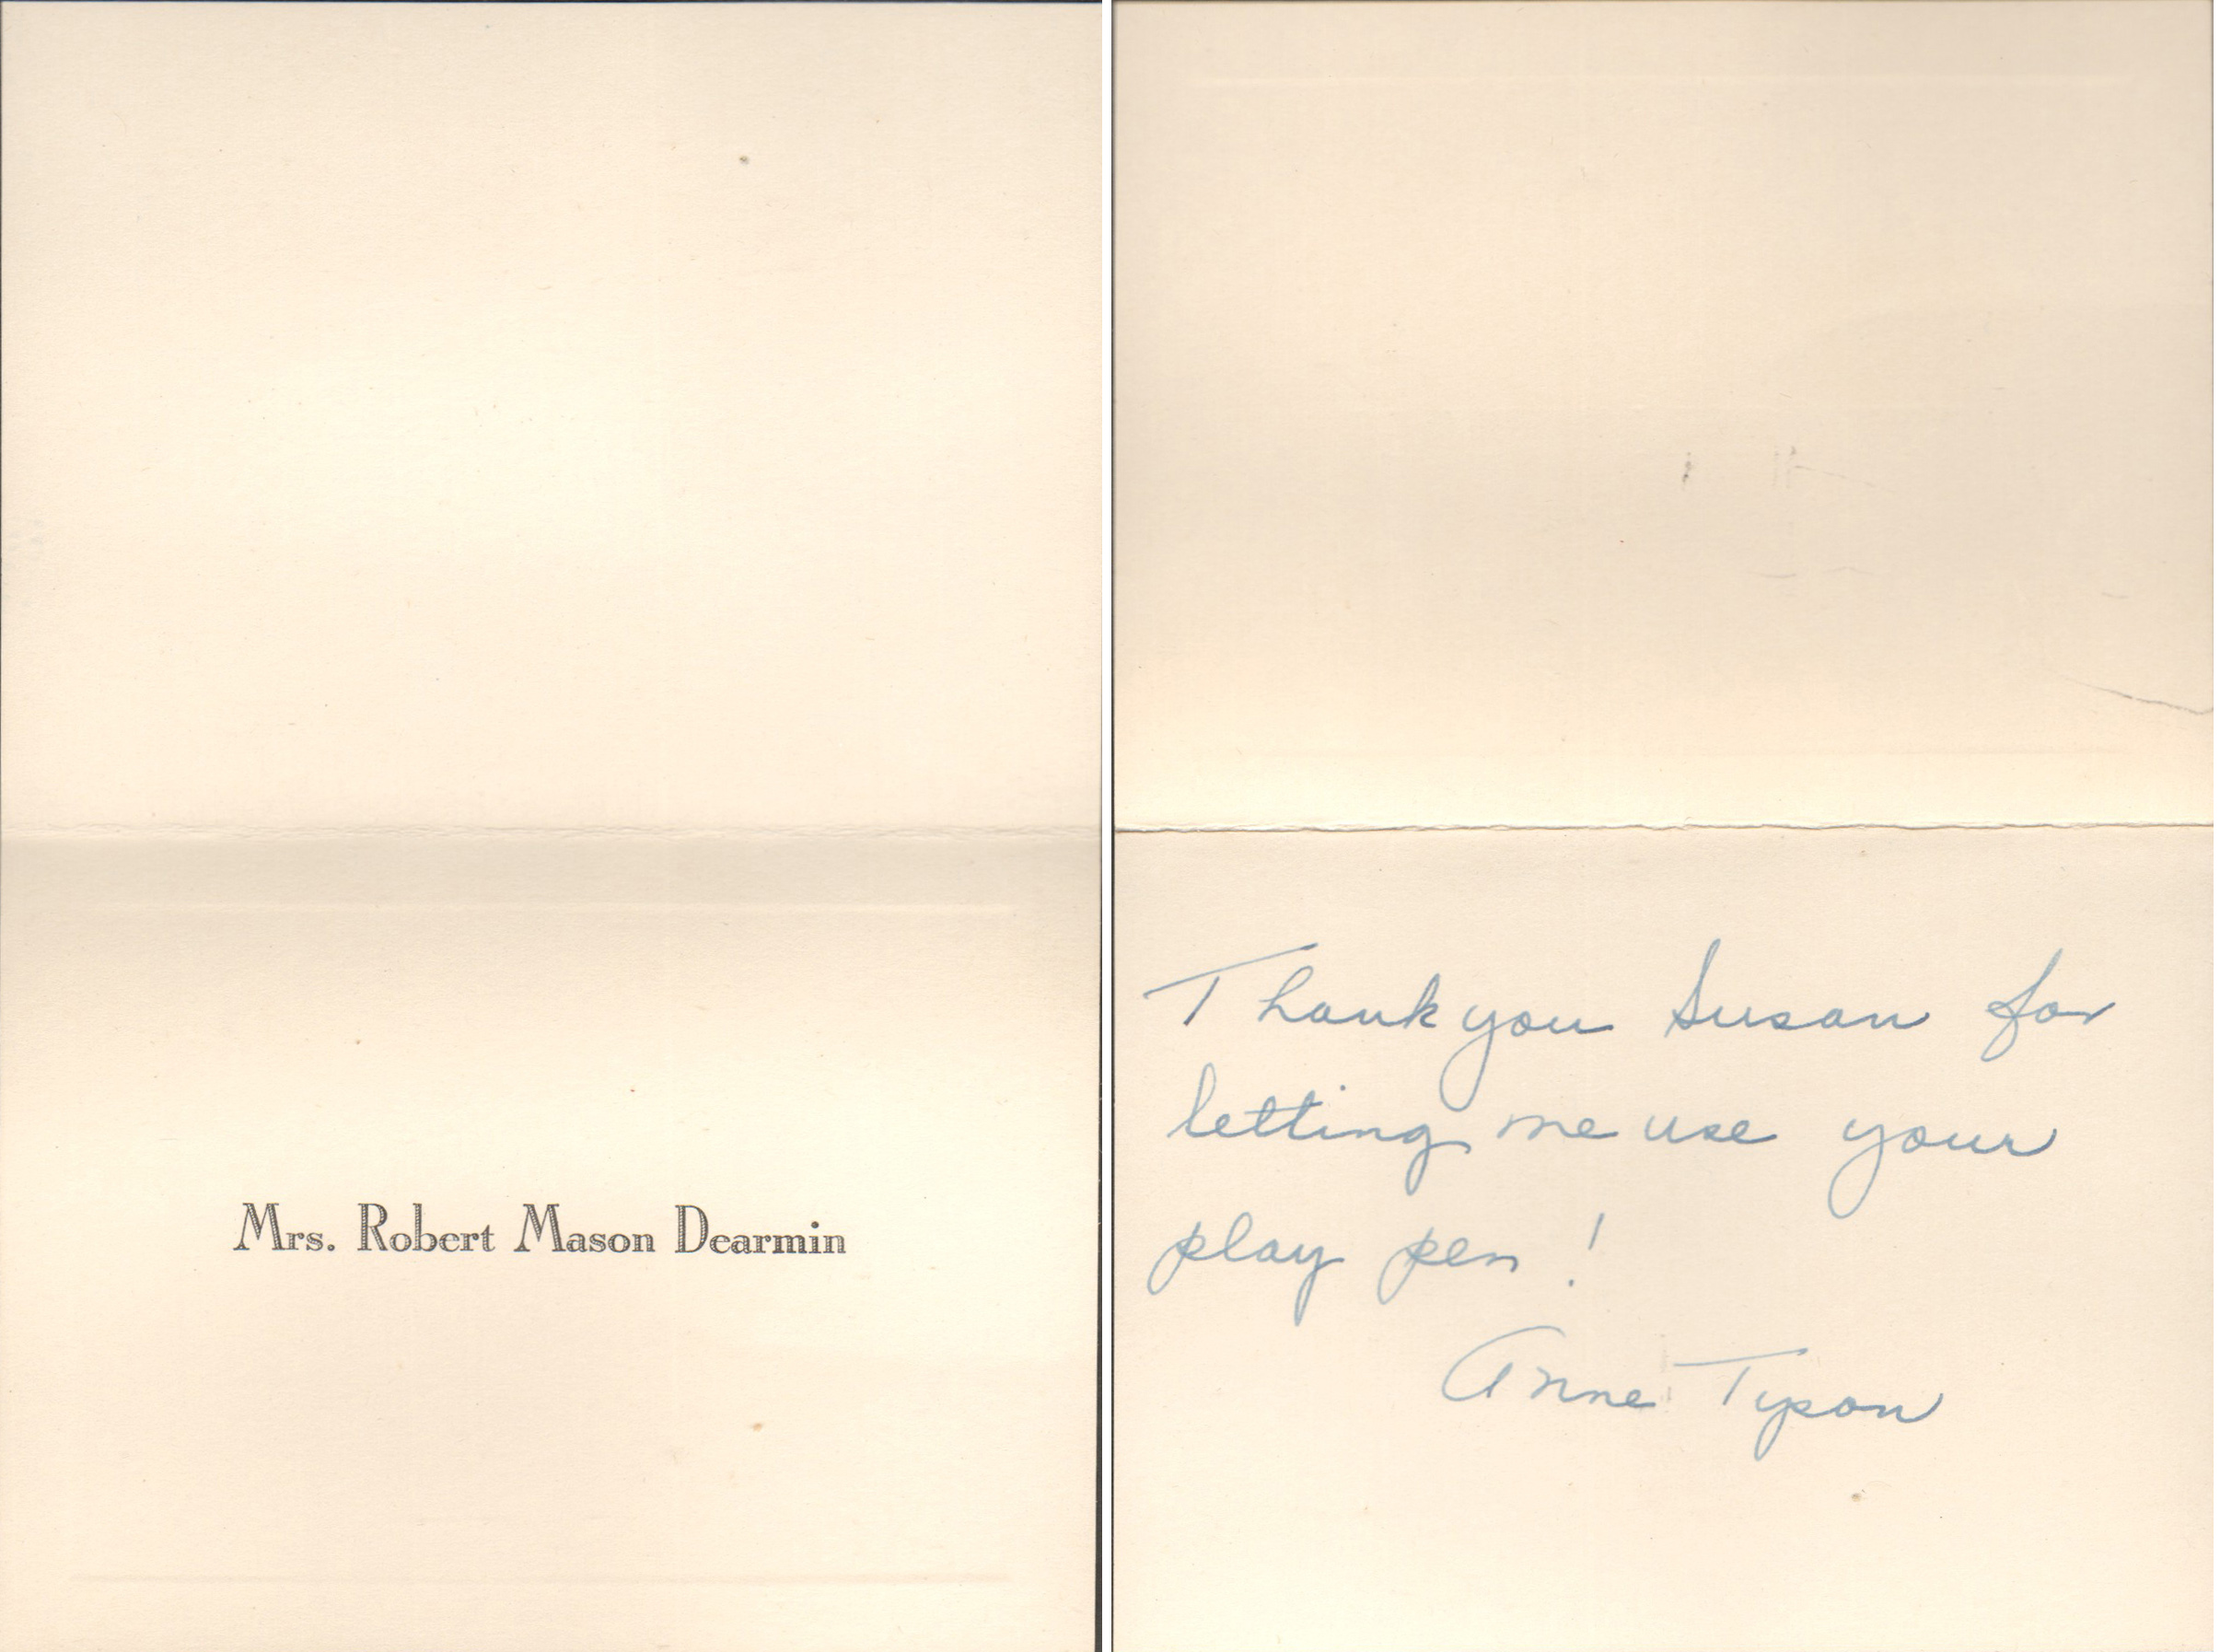 Mrs. Robert Mason Dearmin
Thank you Susan for
letting me use your
play pen!
Anne Tyson